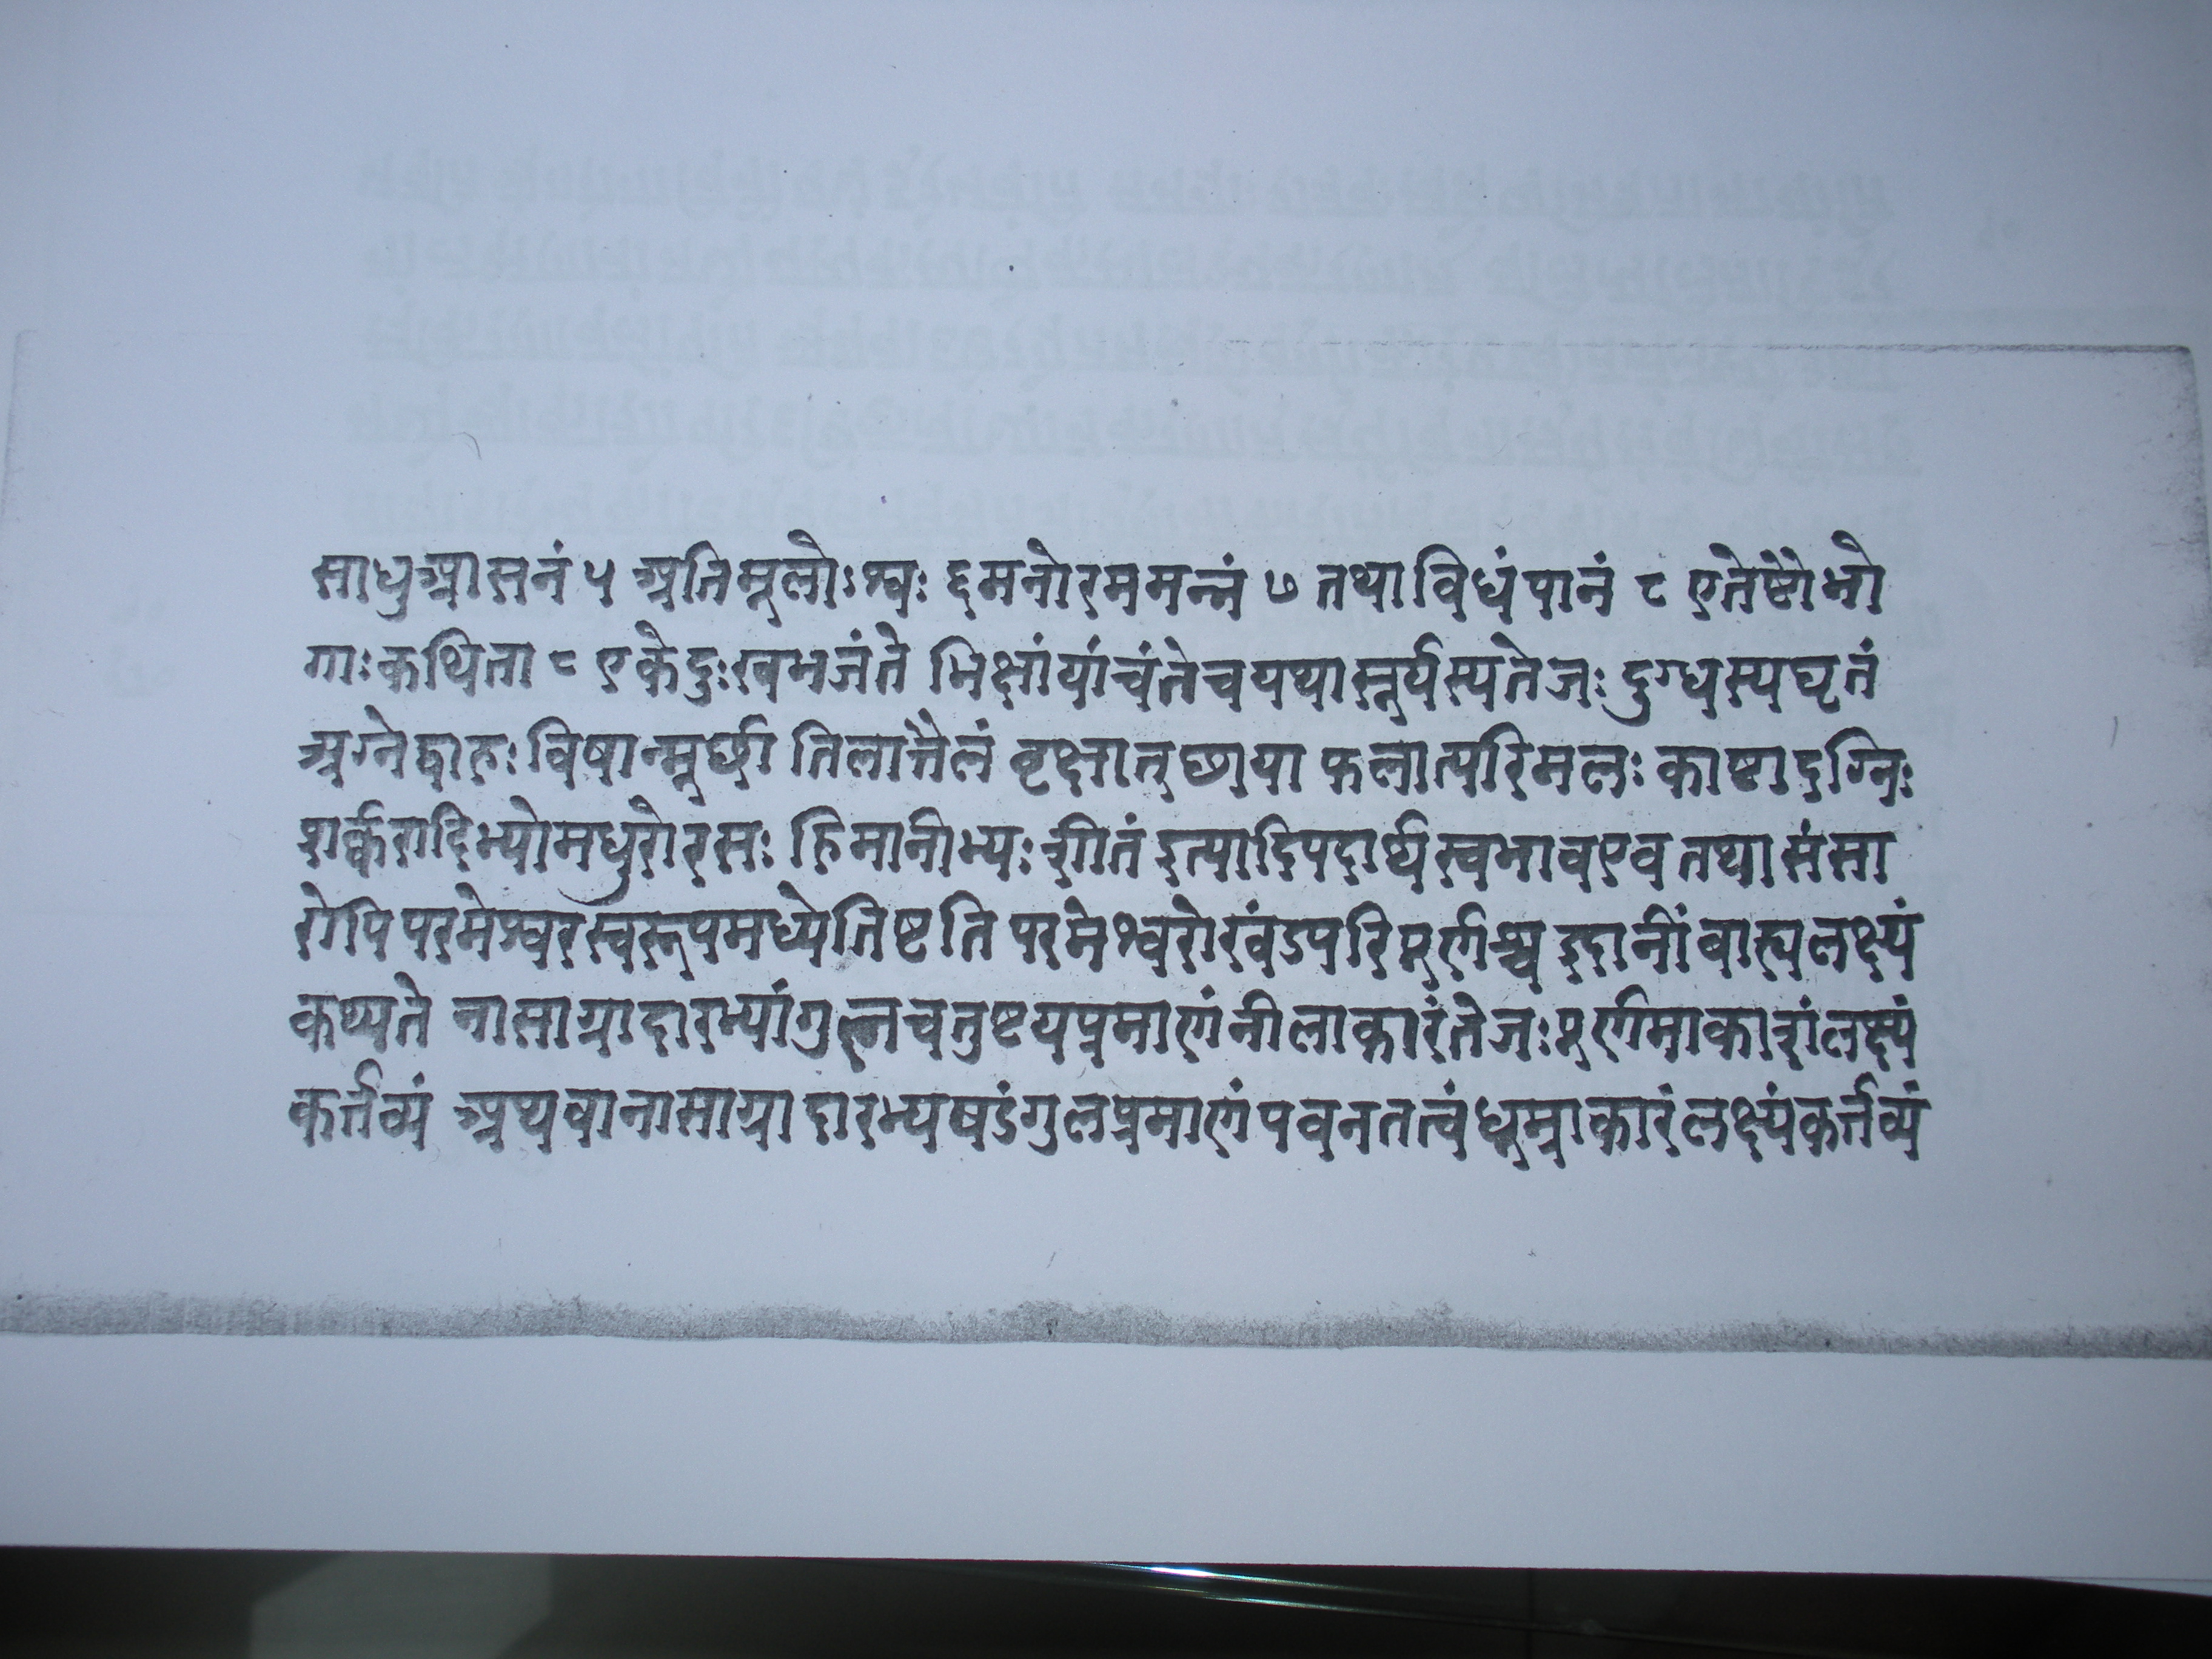 साधुआसनं ५ अतिमूलोःश्वः ६ मनोरममन्नं ७ तथाविधंपानं ८ एतेष्टौभो
गाः कथिता ८ एकेदुःखभजंते भिक्षांयांचंतेच यथा सूर्यस्यतेजः दुग्धस्यघृतं
अग्नेर्द्दाहः विषान्मूर्छा तिलात्तैलं वृक्षात् छाया फलात्परिमलः काष्टादग्निः
शर्क्करादिभ्योमधुरोरसः हिमानीभ्यः शीतं इत्यादिपदार्थस्वभावएव तथा संसा
रोपि परमेश्वरस्वरूपमध्येतिष्टति परमेश्वरोखंडपरिपूर्णश्च इदानीं बाह्यलक्ष्यं
कथ्यते नासाग्रादारभ्यांगुलचतुष्टयप्रमाणंनीलाकारंतेजःपूर्णमाकाशंलक्ष्यं
कर्त्तव्यं अथवानासाग्रादारभ्यषडंगुलप्रमाणंपवनतत्वंधूम्राकारंलक्ष्यंकर्त्तव्यं